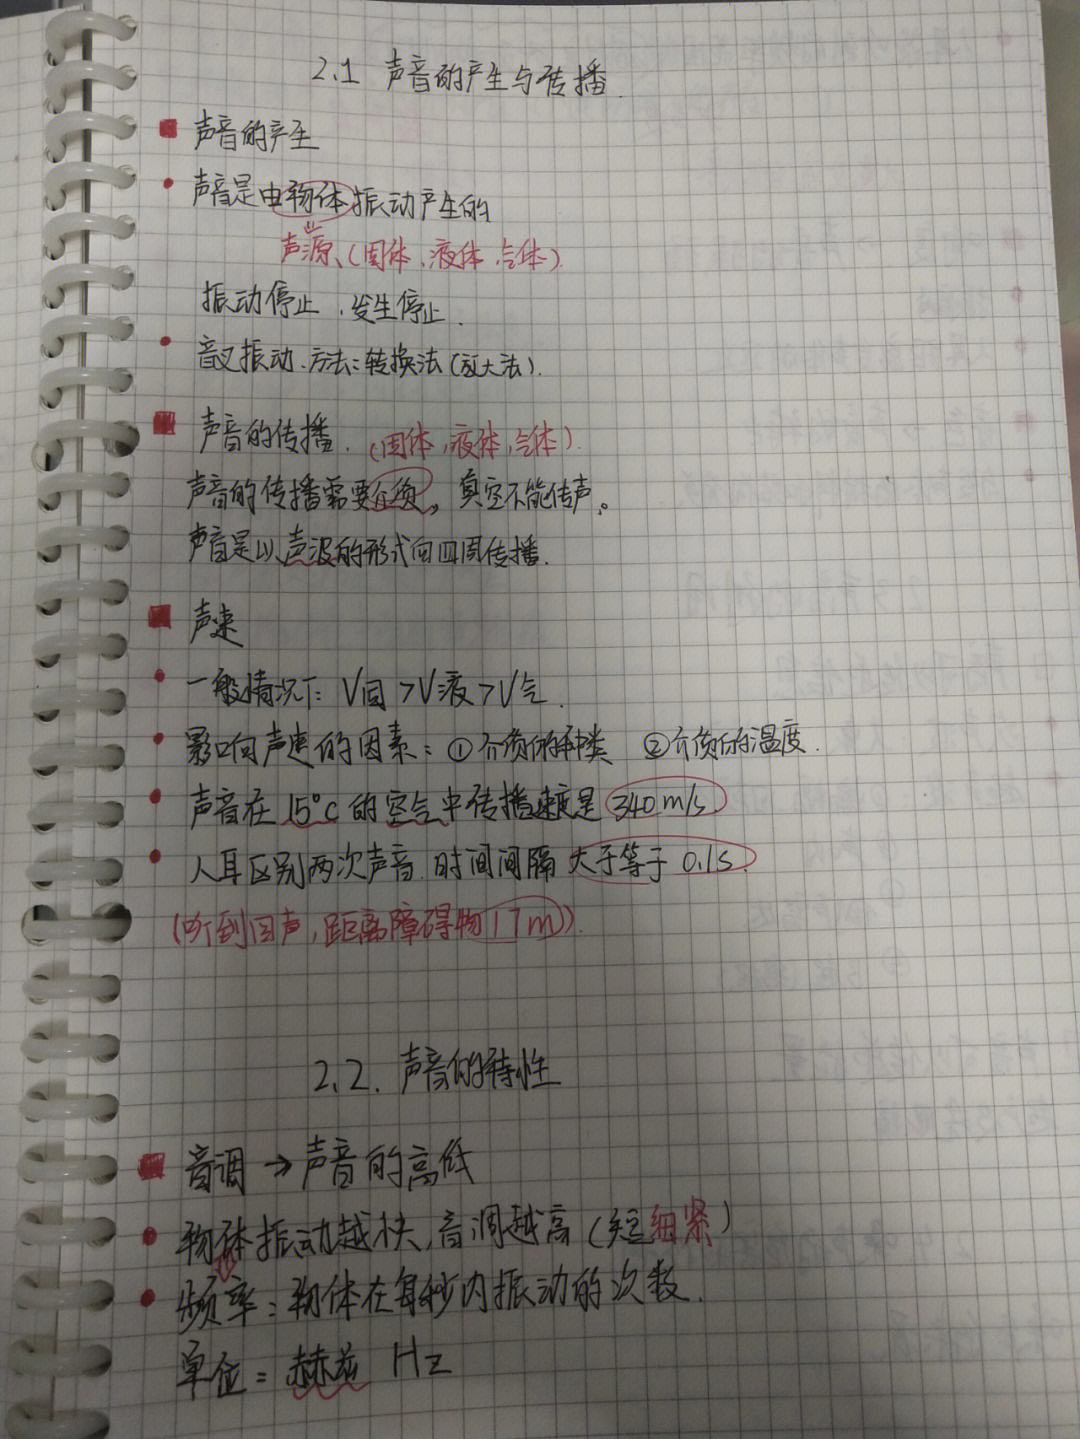 2.1 声音的产生与传播.
声音的产生
声音是由物体振动产生的
声源、(固体、液体、气体)
振动停止,发生停止.
音叉振动.方法:转换法(放大法).
声音的传播. (固体,液体,气体)
声音的传播需要介质,真空不能传声。
声音是以声波的形式向四周传播.
声速
一般情况下: V固>V液>V气.
影响声速的因素: ①介质的种类 ②介质的温度.
声音在15°C的空气中传播速度是340m/s.
人耳区别两次声音.时间间隔大于等于0.1s.
(听到回声,距离障碍物17m).
2.2. 声音的特性
音调→声音的高低
物体振动越快,音调越高(短细紧)
频率:物体在每秒内振动的次数.
单位:赫兹 Hz